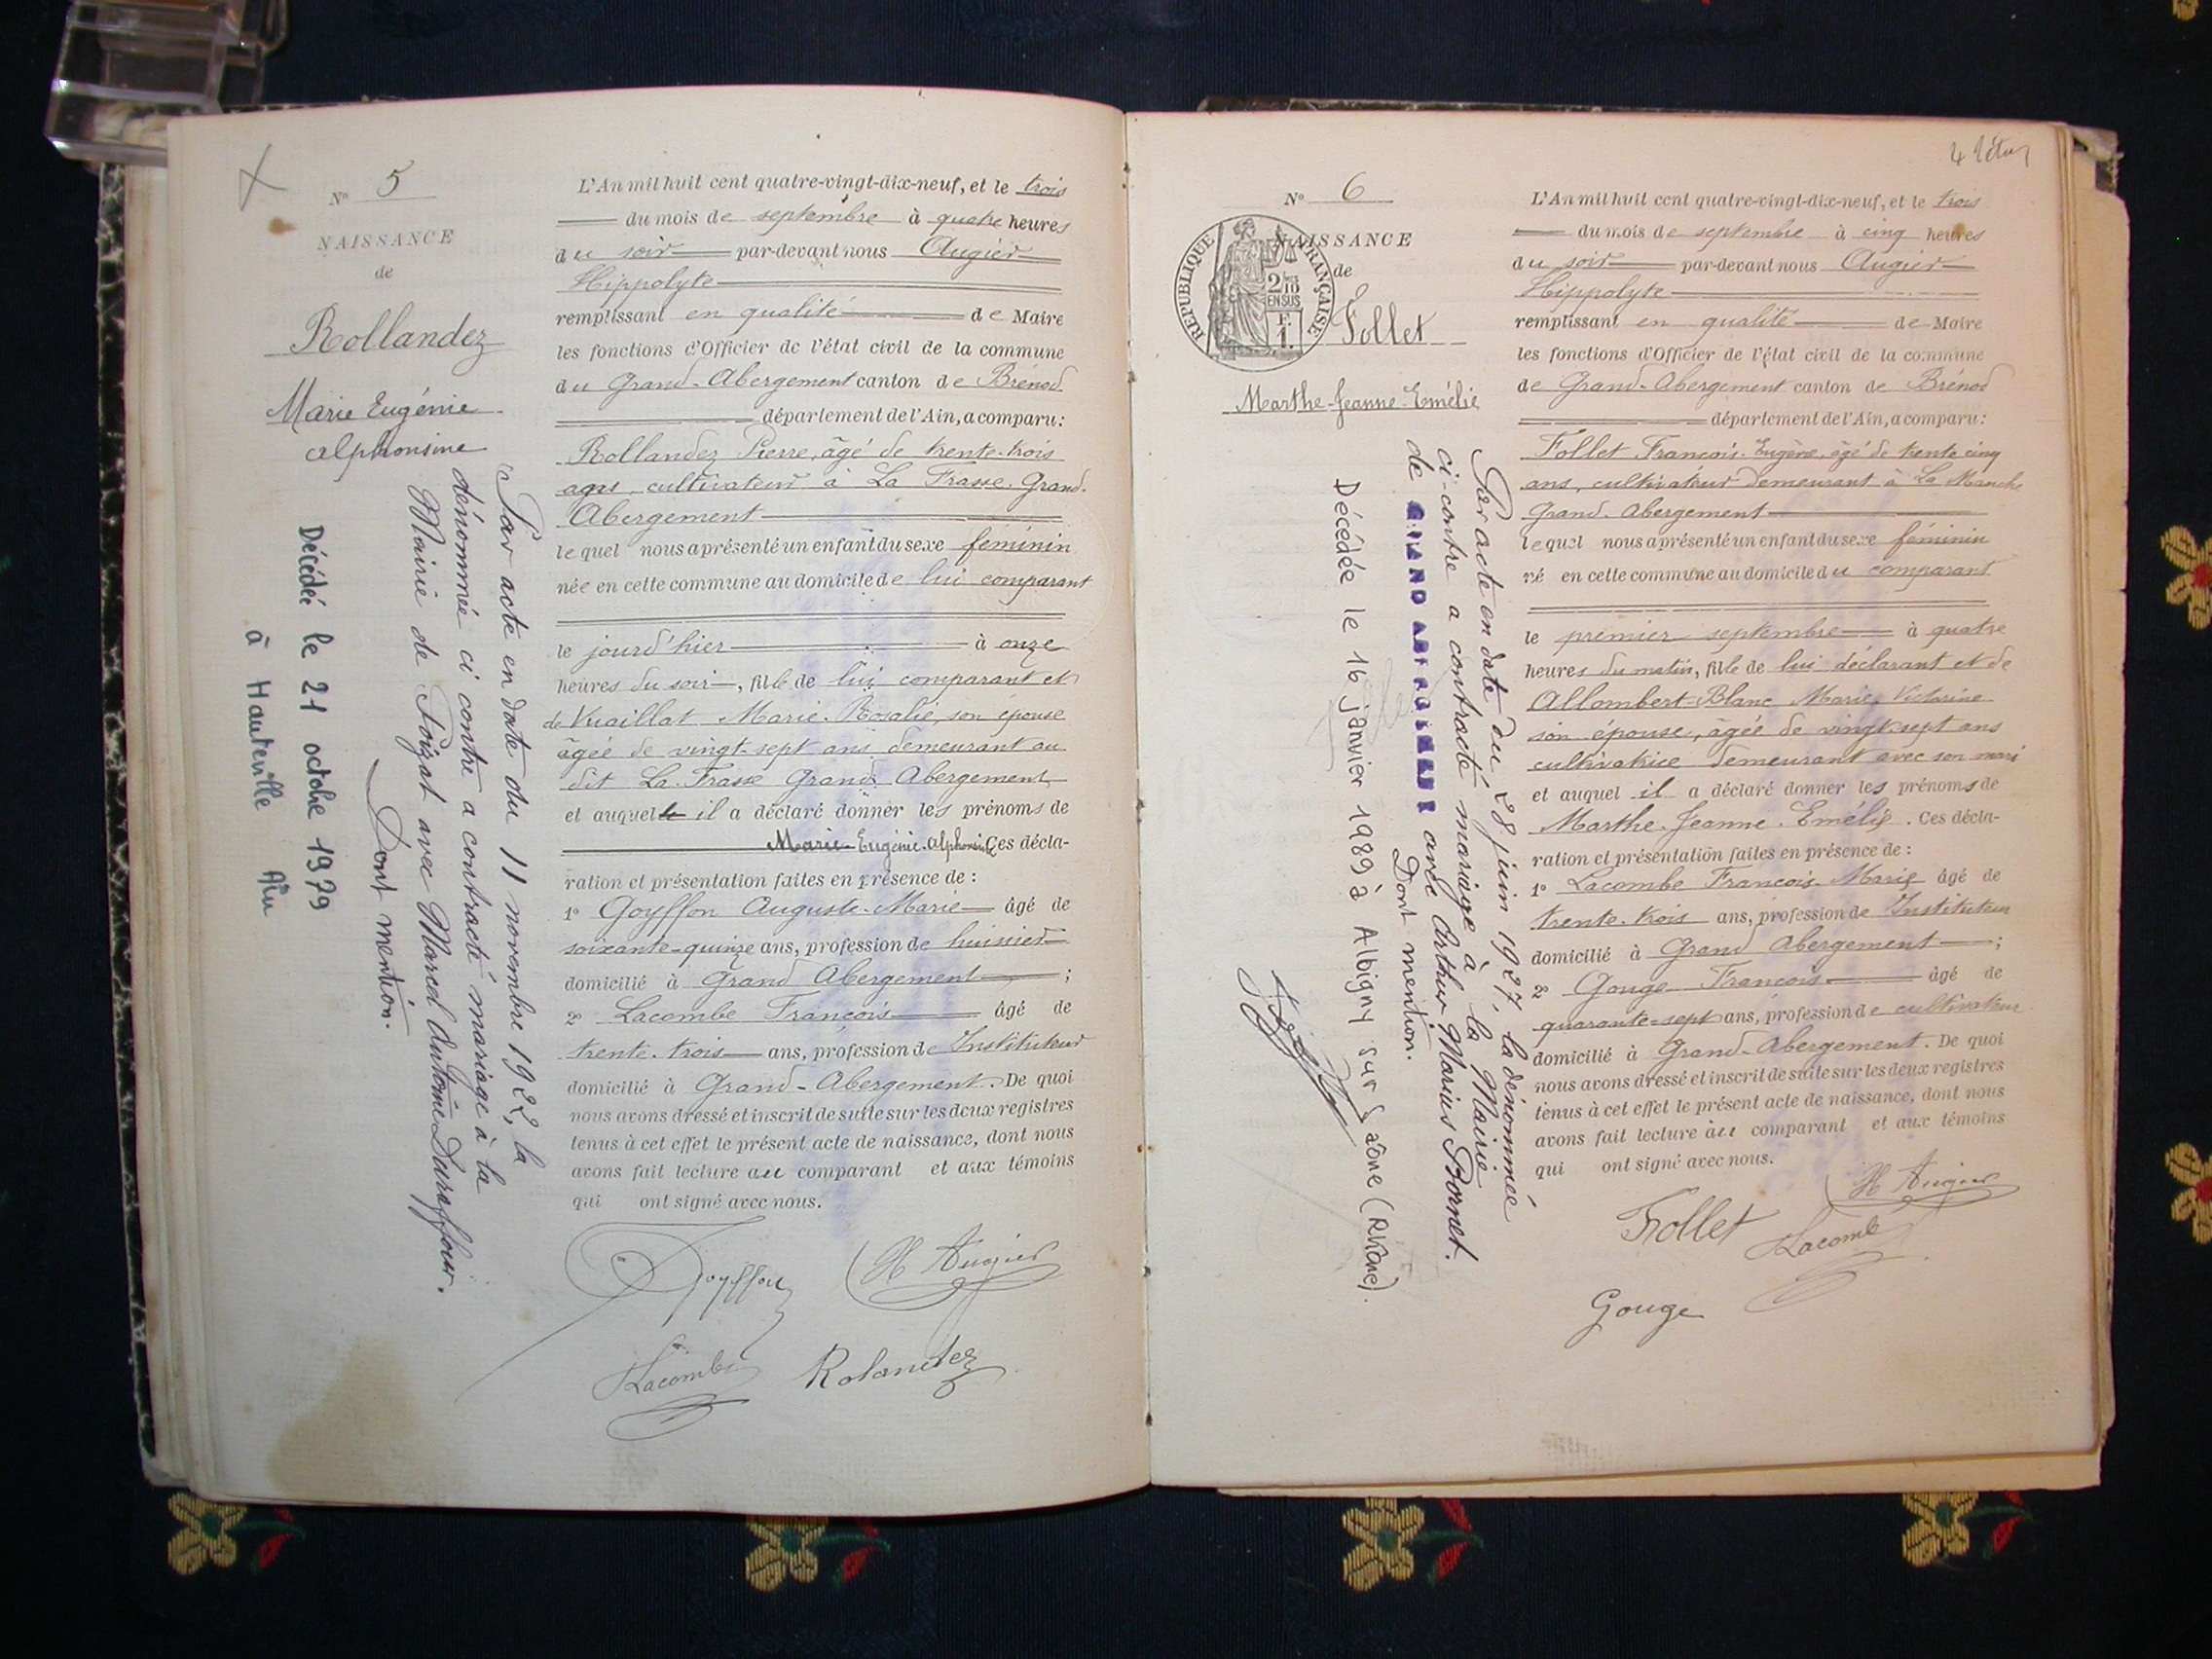 N° 5
NAISSANCE
de
Rollandez
Marie Eugénie
Alphonsine
Par acte en date du 11 novembre 1922, la
dénommée ci contre a contracté mariage à la
Mairie de Poizat avec Marcel Antoine Duraffour.
Dont mention.
Décédée le 21 octobre 1979
à Hauteville Ain
L'An mil huit cent quatre-vingt-dix-neuf, et le trois
du mois de septembre à quatre heures
du soir par-devant nous Augier
Hippolyte
remplissant en qualité de Maire
les fonctions d'Officier de l'état civil de la commune
du Grand-Abergement canton de Brénod
département de l'Ain, a comparu:
Rollandez Pierre, âgé de trente-trois
ans, cultivateur à La Frasse. Grand-
Abergement
lequel nous a présenté un enfant du sexe féminin
née en cette commune au domicile de lui comparant
le jourd'hier à onze
heures du soir, fille de lui comparant et
de Vuaillat Marie-Rosalie, son épouse
âgée de vingt-sept ans demeurant au
dit La Frasse Grand Abergement
et auquel il a déclaré donner les prénoms de
Marie-Eugénie-Alphonsine Ces décla-
ration et présentation faites en présence de :
1° Goyffon Auguste-Marie âgé de
soixante-quinze ans, profession de huissier
domicilié à Grand Abergement ;
2° Lacombe François âgé de
trente-trois ans, profession de Instituteur
domicilié à Grand-Abergement. De quoi
nous avons dressé et inscrit de suite sur les deux registres
tenus à cet effet le présent acte de naissance, dont nous
avons fait lecture au comparant et aux témoins
qui ont signé avec nous.
Goyffon H Augier
Lacombe Rolandez
4 Rétur
N° 6
NAISSANCE
de
REPUBLIQUE FRANÇAISE
2/10
EN SUS
F.
1.
Follet
Marthe-Jeanne-Emélie
Par acte en date du 28 juin 1927, la dénommée
ci-contre a contracté mariage à la Mairie
de GRAND ABERGEMENT avec Arthur Marius Bornet.
Dont mention.
Décédée le 16 janvier 1989 à Albigny sur Saône (Rhône).
L'An mil huit cent quatre-vingt-dix-neuf, et le trois
du mois de septembre à cinq heures
du soir par-devant nous Augier
Hippolyte
remplissant en qualité de Maire
les fonctions d'Officier de l'état civil de la commune
de Grand-Abergement canton de Brénod
département de l'Ain, a comparu:
Follet François-Eugène, âgé de trente cinq
ans, cultivateur demeurant à La Manche
Grand-Abergement
lequel nous a présenté un enfant du sexe féminin
né en cette commune au domicile du comparant
le premier septembre à quatre
heures du matin, fille de lui déclarant et de
Allombert-Blanc Marie Victorine
son épouse, âgée de vingt-sept ans
cultivatrice demeurant avec son mari
et auquel il a déclaré donner les prénoms de
Marthe-Jeanne-Emélie. Ces décla-
ration et présentation faites en présence de :
1° Lacombe François-Marie âgé de
trente-trois ans, profession de Instituteur
domicilié à Grand Abergement ;
2 Gouge François âgé de
quarante-sept ans, profession de cultivateur
domicilié à Grand-Abergement. De quoi
nous avons dressé et inscrit de suite sur les deux registres
tenus à cet effet le présent acte de naissance, dont nous
avons fait lecture au comparant et aux témoins
qui ont signé avec nous.
H Augier
Follet Lacombe
Gouge